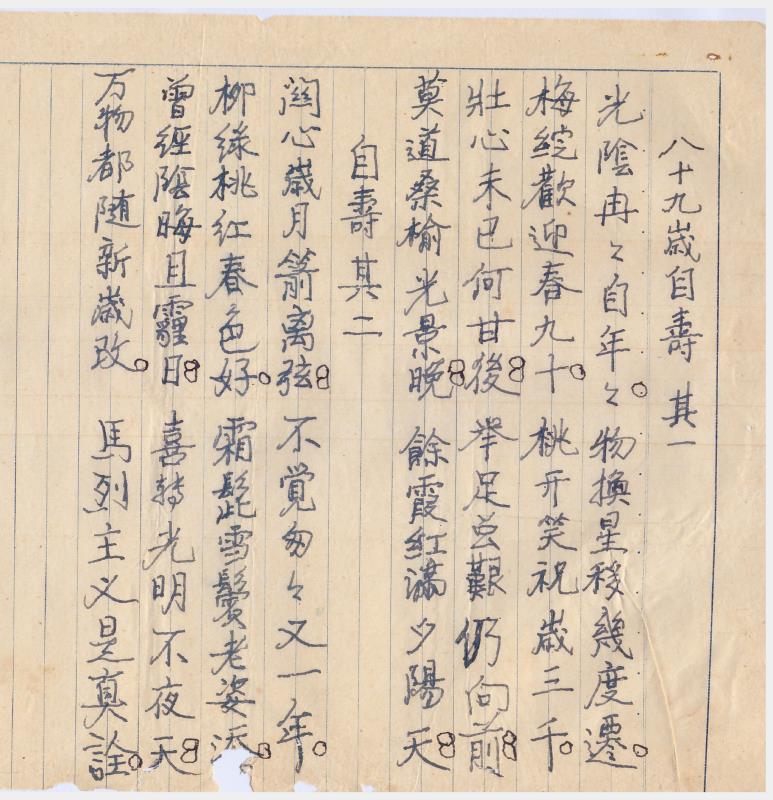 八十九歲自壽 其一
光陰冉々自年々。物換星移幾度遷。
梅綻歡迎春九十。桃开笑祝歲三千。
壯心未已何甘後 举足艱仍向前
莫道桑榆光景晚 餘霞紅滿夕陽天
自壽其二
関心歲月箭离弦 不覚匆々又一年。
柳綠桃红春色好。霜髭雪鬢老姿添
曾經陰晦且霾日 喜轉光明不夜天
万物都随新歲改。馬列主义是真詮。